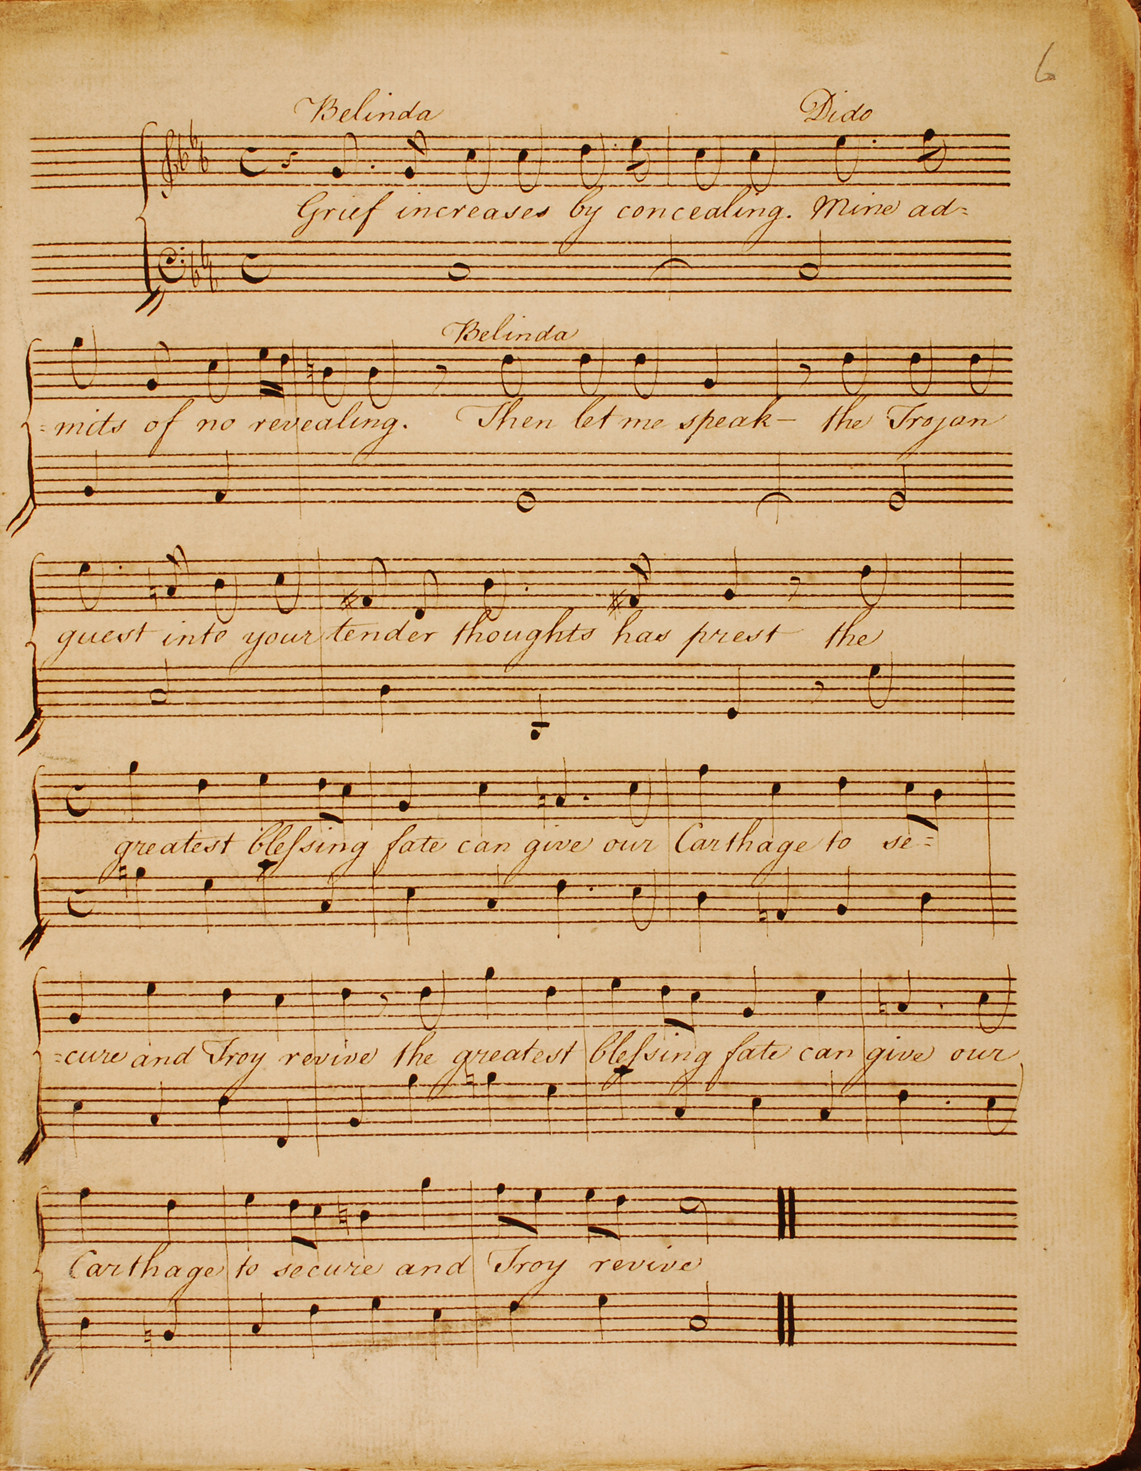 6
Belinda Dido
Grief increases by concealing. Mine ad=
Belinda
=mits of no revealing. Then let me speak— the Trojan
guest into your tender thoughts has prest the
greatest bleſsing fate can give our Carthage to se=
=cure and Troy revive the greatest bleſsing fate can give our
Carthage to secure and Troy revive